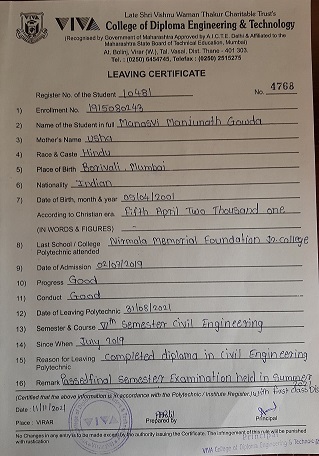 Late Shri Vishnu Waman Thakur Charitable Trust's
VIVA College of Diploma Engineering & Technology
(Recognised by Government of Maharashtra Approved by A.I.C.T.E. Delhi & Affiliated to the
Maharashtra State Board of Technical Education, Mumbai)
At. Bolinj, Virar (W.), Tal. Vasai, Dist. Thane - 401 303.
Tel. : (0250) 6454745, Telefax : (0250) 2515275
LEAVING CERTIFICATE
Register No. of the Student 10481 No. 4768
1) Enrollment No. 1915080243
2) Name of the Student in full Manasvi Manjunath Gowda
3) Mother's Name Usha
4) Race & Caste Hindu
5) Place of Birth Borivali, Mumbai
6) Nationality Indian
7) Date of Birth, month & year 05/04/2001
According to Christian era Fifth April Two Thousand one
(IN WORDS & FIGURES) -
8) Last School / College Nirmala Memorial Foundation Jr. college
Polytechnic attended
9) Date of Admission 02/07/2019
10) Progress Good
11) Conduct Good
12) Date of Leaving Polytechnic 31/08/2021
13) Semester & Course VIth Semester Civil Engineering
14) Since When July 2019
15) Reason for Leaving Completed diploma in Civil Engineering
Polytechnic
16) Remark Passed final semester Examination held in Summer
with first class
(Certified that the above information is in accordance with the Polytechnic / Institute Register.)
Date 11/11/2021
Place : VIRAR Prepared by Principal
No Changes in any entry is to be made except by the authority issuing the Certificate. The infringement of this rule will be punished
with rustication
Principal
VIVA College of Diploma Engineering & Technology